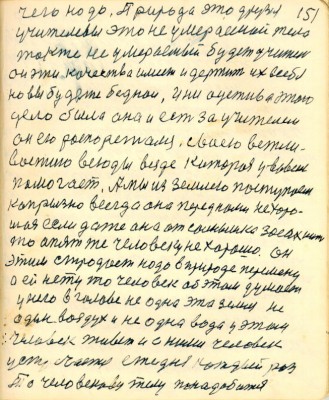 чего надо, Природа это друзья 151
учителевы это не умерленой тело
тоже не умерлевый будет учител
он эти качества имеет и держит их в себе
но вы будете бедной, и ни
дело была она и ест за учителем
он ею своею вежли-
востию везде которая у
помогает, А мы из землею поступаем
капризно всегда она перед нами нехоро-
шая если даже она от солнышка засохнить
то опят же человеку нехорошо. Он
этим страдает надо в природе перемену
а ей нету то человек об этом думает
у него в голове не одна эта земля не
один воздух и не одна вода у этому
человек живет и с ними человек
ежедня каждый раз
Это человекову телу понадобится